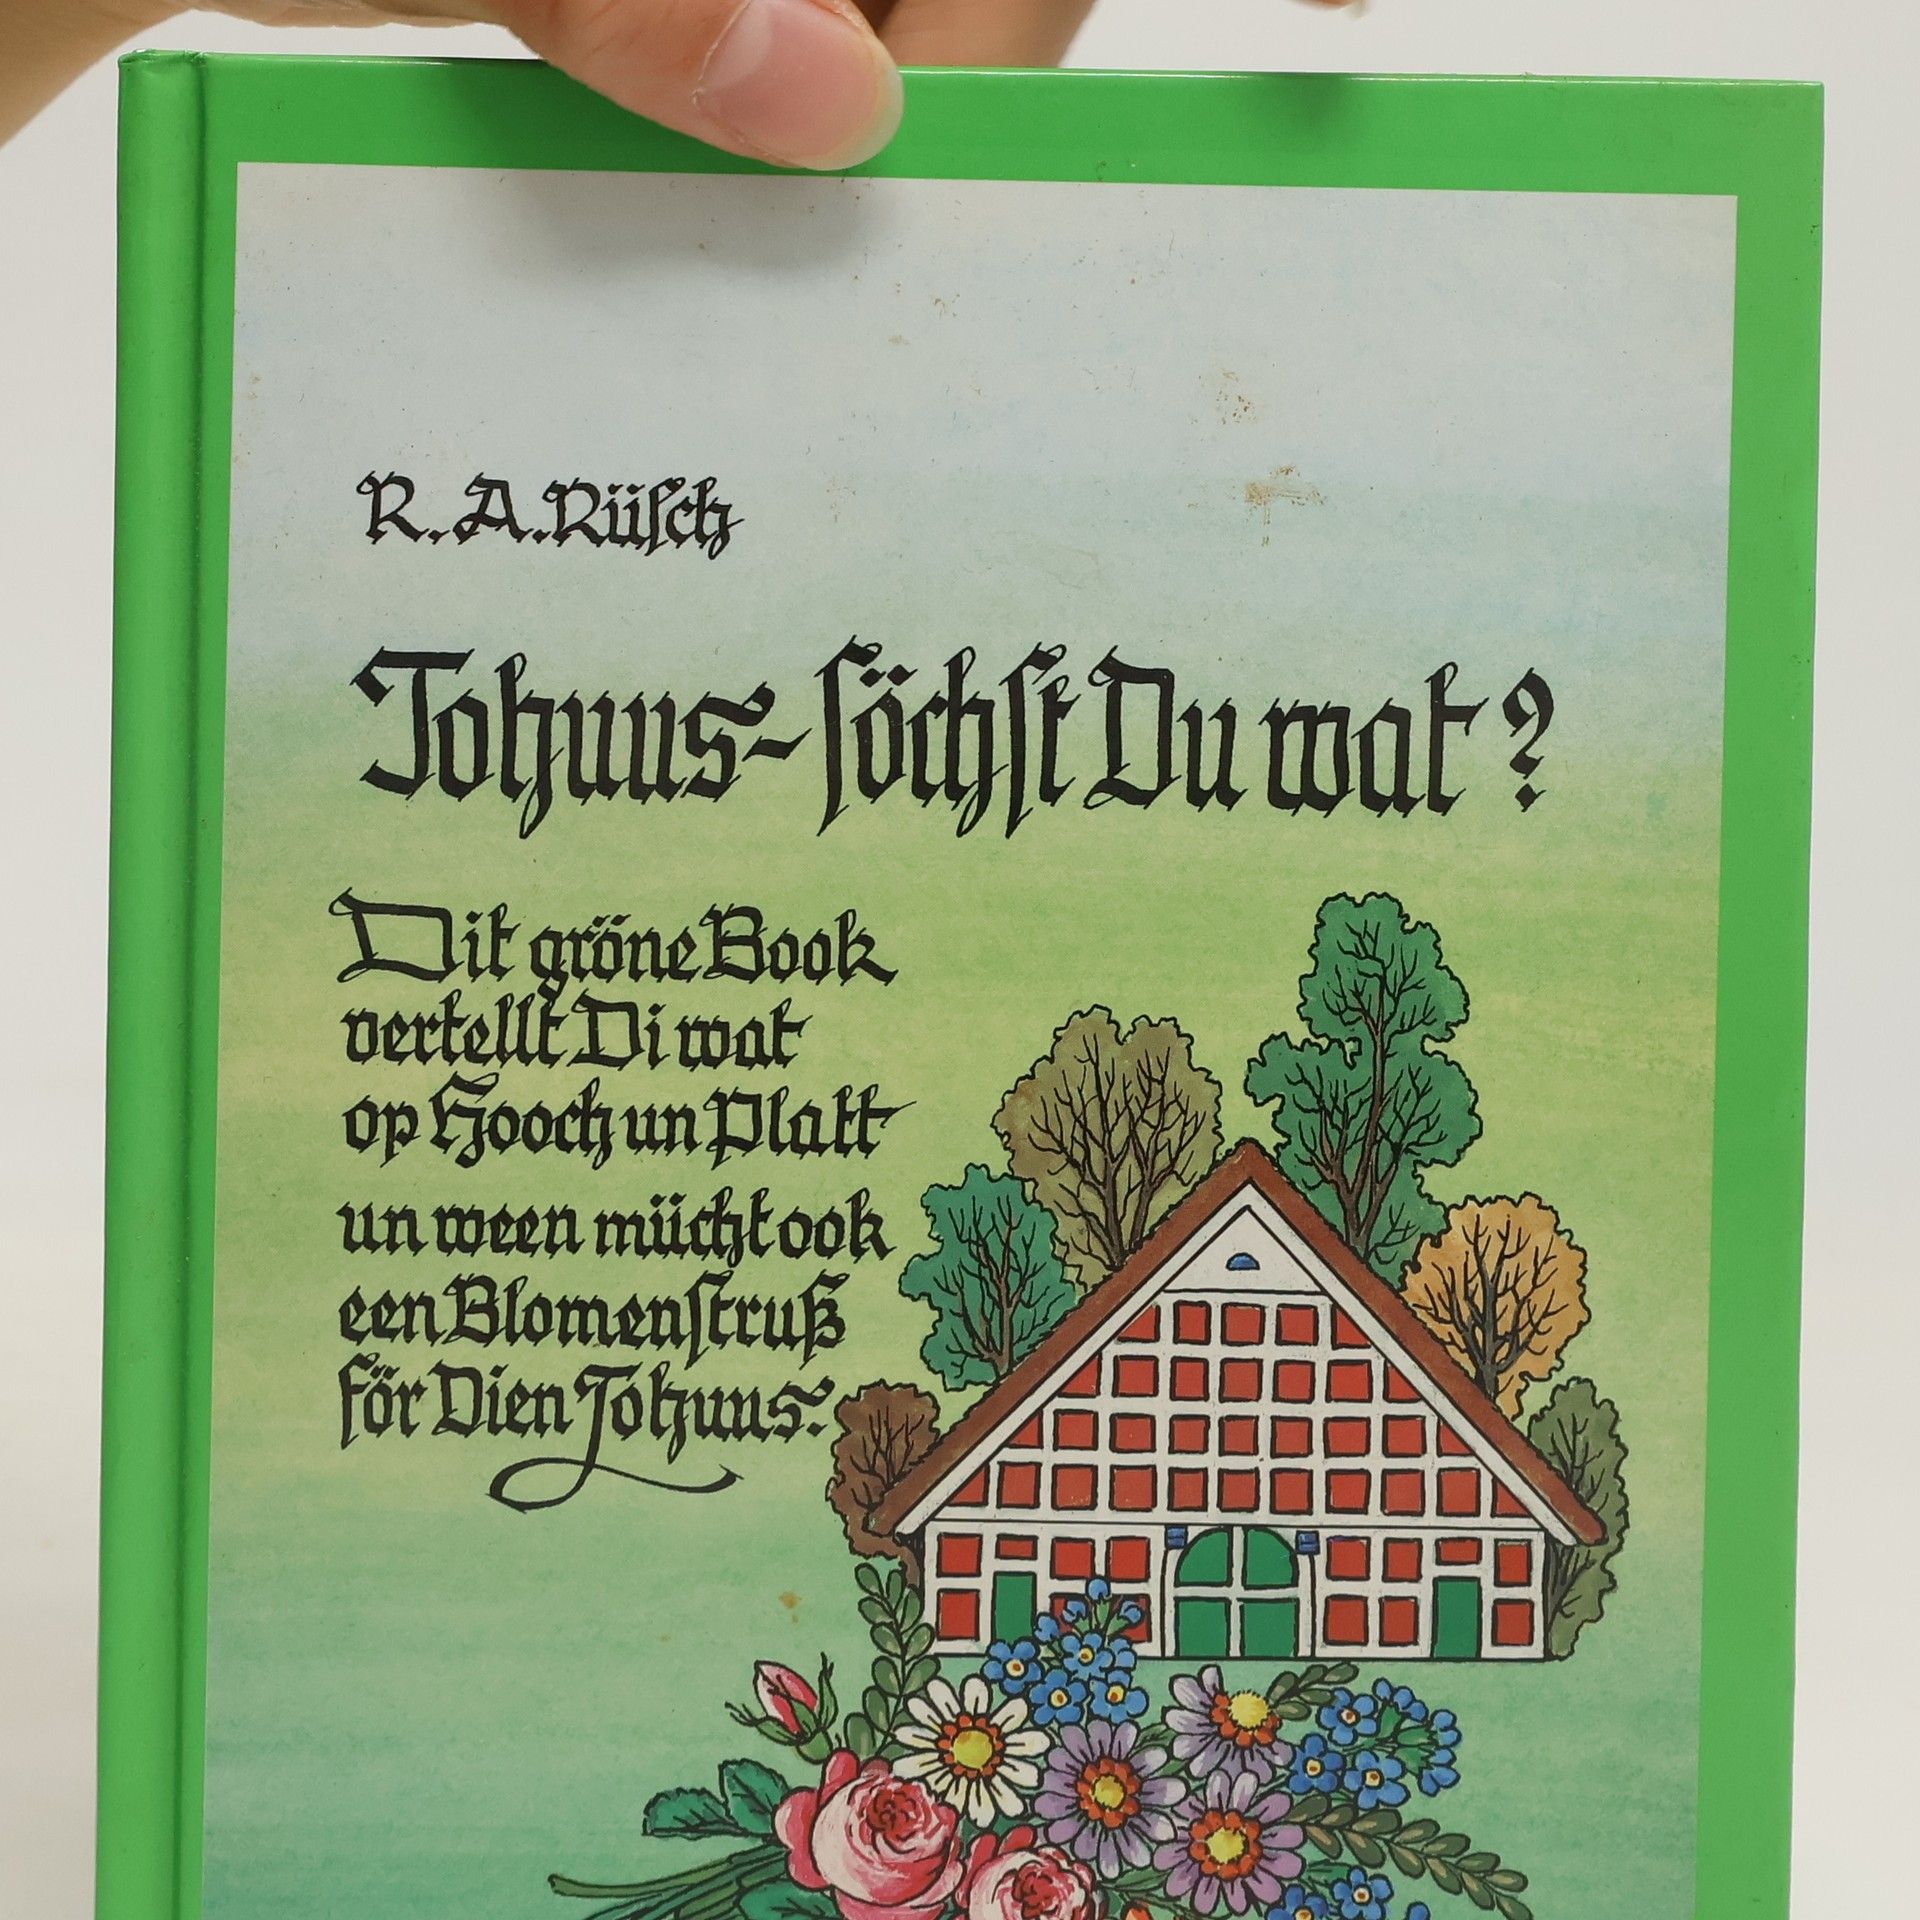 R. A. Rüsch
Tohuus - söchst Du wat?
Dit gröne Book
vertellt Di wat
op Hooch un Platt
un ween mücht ook
een Blomenstruß
för Dien Tohuus.